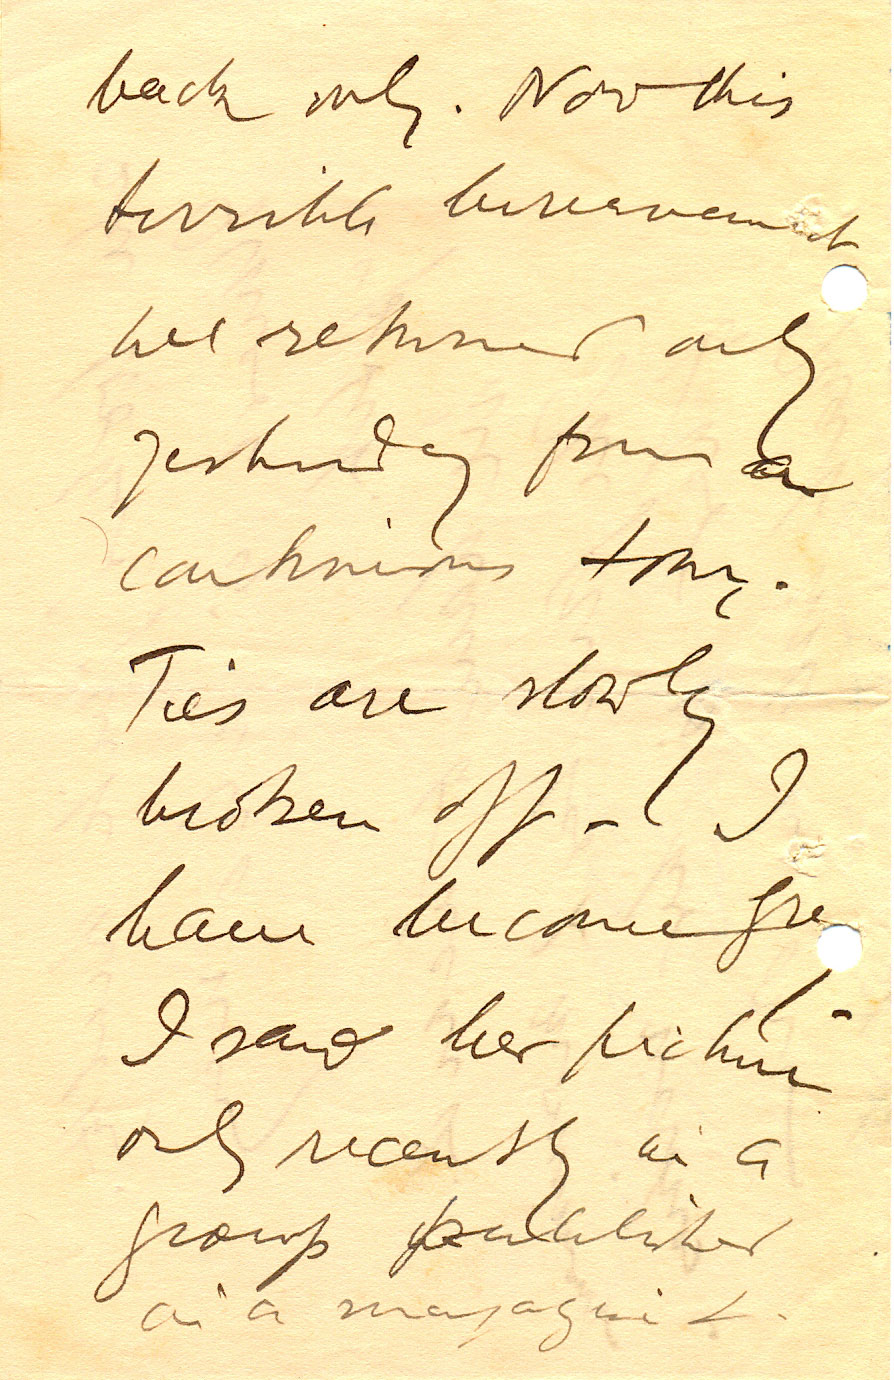 back only. Now this
terrible bereavement
We returned only
yesterday from a
continuous tour.
Ties are slowly
broken off - I
have become
I saw her picture
only recently in a
group published
in a magazine.